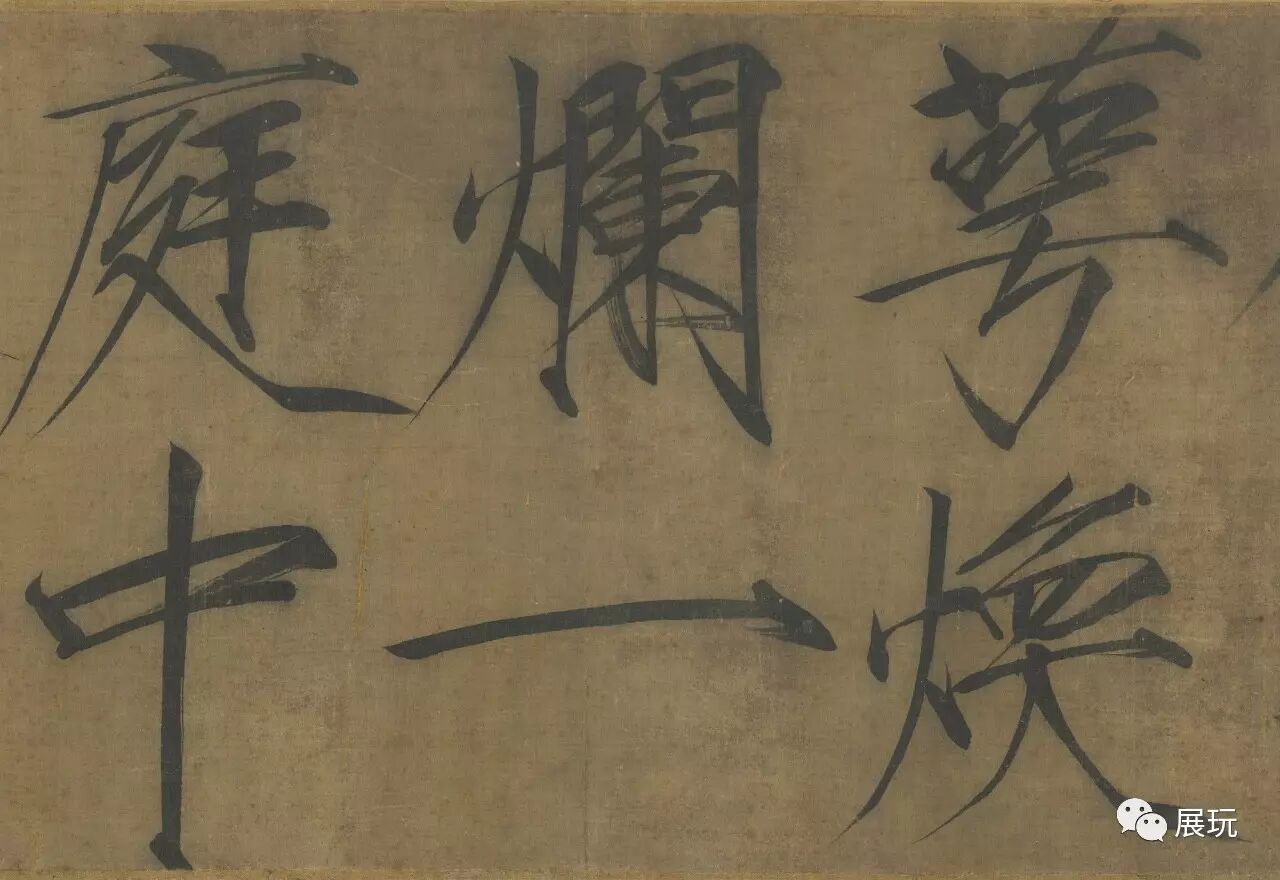 萼煥
爛一
庭中
展玩